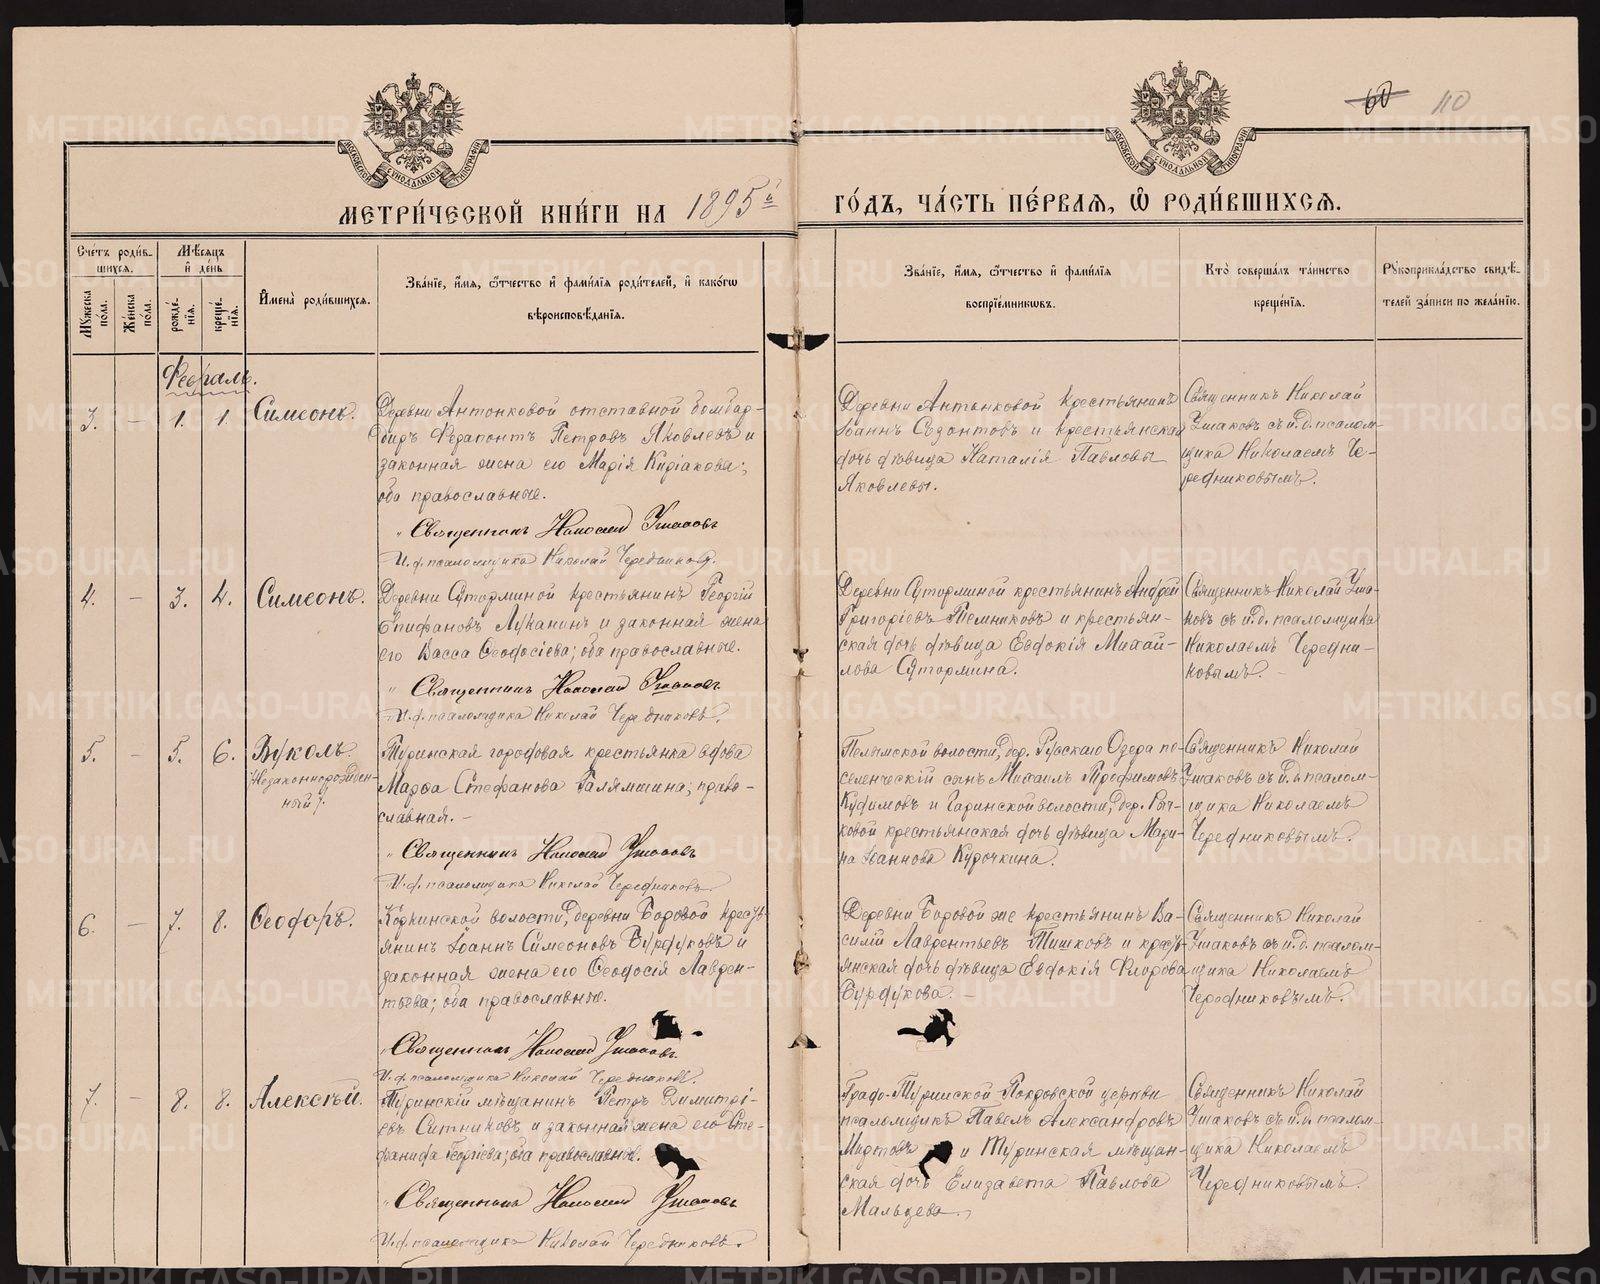 60 110
МОСКОВСКОЙ СѴНОДАЛЬНОЙ ТИПОГРАФІИ
МОСКОВСКОЙ СѴНОДАЛЬНОЙ ТИПОГРАФІИ
МЕТРИ́ЧЕСКОЙ КНИ́ГИ НА 1895й ГО́ДЪ, ЧА́СТЬ ПЕ́РВАЯ, Ѽ РОДИ́ВШИХСЯ.
Сче́тъ роди́в-
шихся.
Мꙋжеска пола.
Же́нска по́ла.
Мѣ́сяцъ
и҆ де́нь
рожде́-
нїя.
креще́-
нїя.
И҆мена̀ роди́вшихся.
Зва́нїе, и҆́мя, ѻ҆́тчество и҆ фами́лїя роди́телей, и҆ како́гѡ
вѣроисповѣ́данїя.
Зва́нїе, и҆́мя, ѻ҆́тчество и҆ фами́лїя
воспрїе́мникѡвъ.
Кто̀ соверша́лъ та́инство
креще́нїя.
Рꙋкоприкла́дство свидѣ́-
телей за́писи по жела́нїю.
Февраль.
3. — 1. 1. Симеонъ.
Деревни Антонковой отставной бомбар-
диръ Ферапонтъ Петровъ Яковлевъ и
законная жена его Марія Киріакова;
оба православные.
Священникъ Николай Ушаковъ
И. д. псаломщика Николай Чередниковъ.
Деревни Антонковой крестьянинъ
Іоаннъ Созонтовъ и крестьянская
дочь дѣвица Наталія Павловы
Яковлевы.
Священникъ Николай
Ушаковъ съ и. д. псалом-
щика Николаемъ Че-
редниковымъ.
4. — 3. 4. Симеонъ.
Деревни Суторминой крестьянинъ Георгій
Епифановъ Луканинъ и законная жена
его Васса Ѳеодосіева; оба православные.
Священникъ Николай Ушаковъ
И. д. псаломщика Николай Чередниковъ.
Деревни Суторминой крестьянинъ Андрей
Григоріевъ Темниковъ и крестьян-
ская дочь дѣвица Евдокія Михай-
лова Сутормина.
Священникъ Николай Уша-
ковъ съ и. д. псаломщика
Николаемъ Чередни-
ковымъ. —
5. — 5. 6. Вуколъ
(незаконнорожден-
ный).
Туринская городовая крестьянка вдова
Марѳа Стефанова Галямшина; право-
славная. —
Священникъ Николай Ушаковъ
И. д. псаломщика Николай Чередниковъ.
Пелымской волости, дер. Рускаго Озера по-
селенческій сынъ Михаилъ Трофимовъ
Кудимовъ и Гаринской волости, дер. Рыч-
ковой крестьянская дочь дѣвица Мари-
на Іоаннова Курочкина.
Священникъ Николай
Ушаковъ съ и. д. псалом-
щика Николаемъ
Чередниковымъ.
6. — 7. 8. Ѳеодоръ.
Коркинской волости, деревни Боровой кресть-
янинъ Іоаннъ Симеоновъ Бурдуковъ и
законная жена его Ѳеодосія Лаврен-
тьева; оба православные.
Священникъ Николай Ушаковъ
И. д. псаломщика Николай Чередниковъ.
Деревни Боровой же крестьянинъ Ва-
силій Лаврентьевъ Тишковъ и кресть-
янская дочь дѣвица Евдокія Флорова
Бурдукова. —
Священникъ Николай
Ушаковъ съ и. д. псалом-
щика Николаемъ
Чередниковымъ.
7. — 8. 8. Алексѣй.
Туринскій мѣщанинъ Петръ Димитрі-
евъ Ситниковъ и законная жена его Сте-
фанида Георгіева; оба православные.
Священникъ Николай Ушаковъ
И. д. псаломщика Николай Чередниковъ.
Градо-Туринской Покровской церкви
псаломщикъ Павелъ Александровъ
и Туринская мѣщан-
ская дочь Елизавета Павлова
Мальцева.
Священникъ Николай
Ушаковъ съ и. д. псалом-
щика Николаемъ
Чередниковымъ.
METRIKI.GASO-URAL.RU